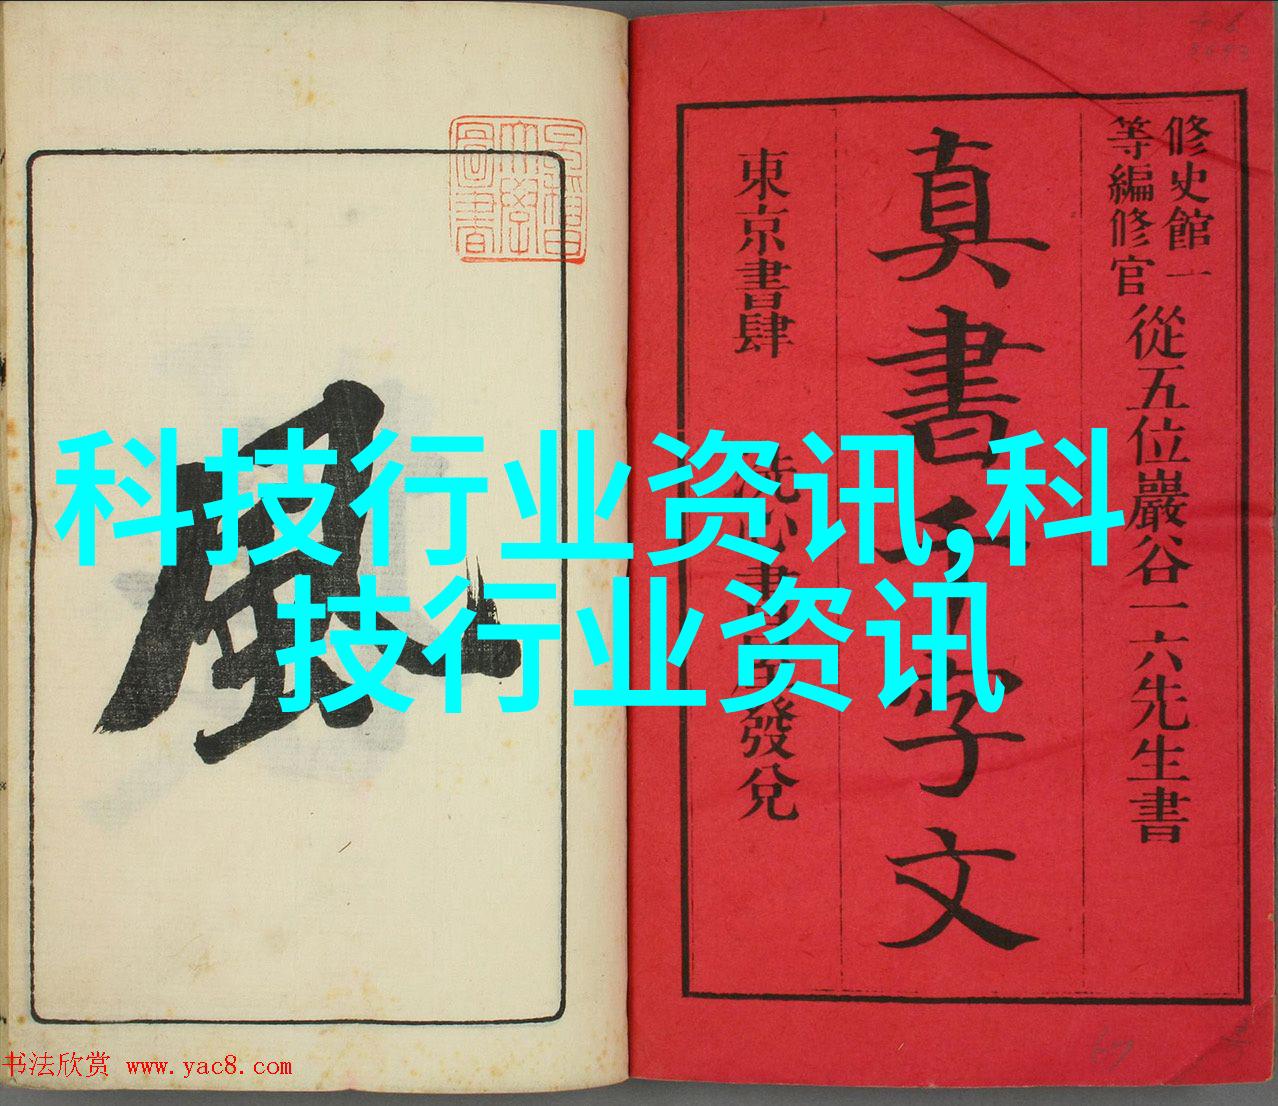 科技行业资讯,科
技行业资讯
修史館一
等編修官
從五位巖谷一六先生書
真書千字文
東京書肆
發兌
風
書法欣赏 www.yac8.com